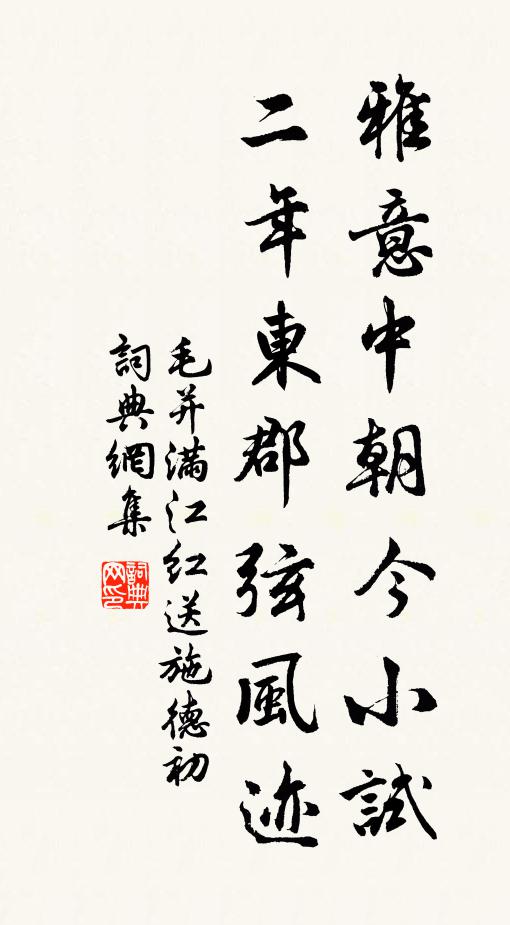 雅意中朝今小試
二年東郡弦風迹
毛并满江红送施德初
詞典網集
詞典网印